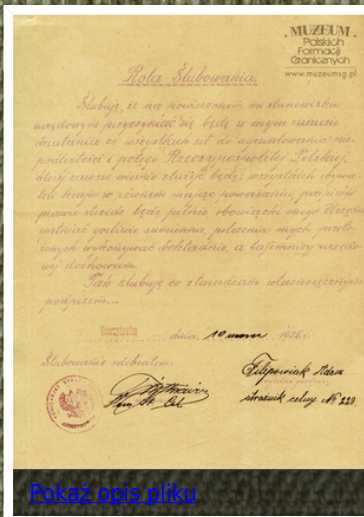 MUZEUM
Polskich
Formacji
Granicznych
www.muzeumsg.pl
Rota Ślubowania.
Ślubuję, że na powierzonem mi stanowisku
urzędowem przyczyniać się będę w mym zakresie
działania ze wszystkich sił do ugruntowania nie-
podległości i potęgi Rzeczypospolitej Polskiej,
której zawsze wiernie służyć będę, wszystkich obywa-
teli kraju w równem mając zachowaniu, przepisów
prawa strzec będę pilnie, obowiązki mego Urzędu
spełniać gorliwie i sumiennie, polecenia mych przeło-
żonych wykonywać dokładnie, a tajemnicy urzędo-
wej dochowam.
Tak ślubuję co stwierdzam własnoręcznym
podpisem.
dnia 10 marca 1926 r.
Ślubowanie odebrałem:
Filipowiak Adam
strażnik celny № 229.
Pokaż opis pliku